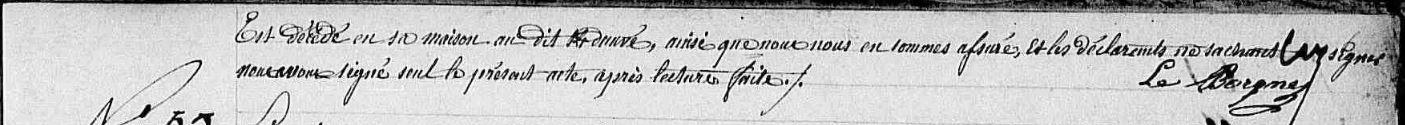 Est décédé en sa maison au dit, ainsi que nous nous en sommes assuré, et les déclarants ne sachant signer
nous avons signé seul le présent acte, après lecture faite./.
Le Borgne
N° 53